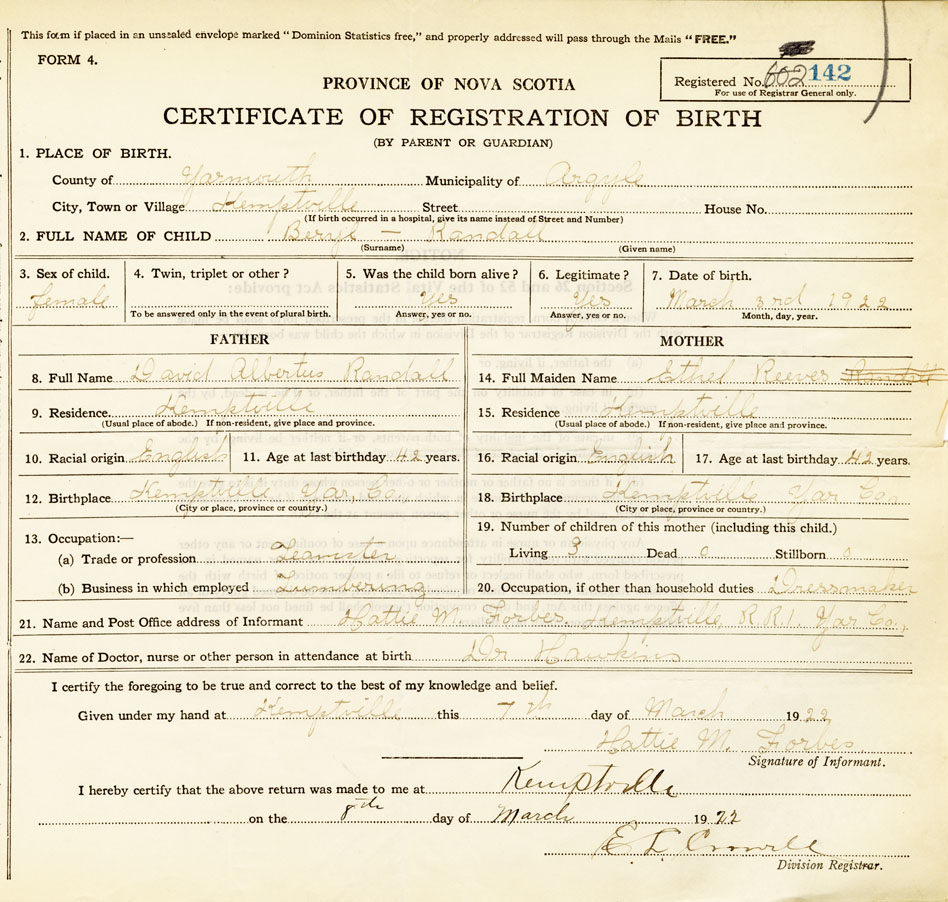 This form if placed in an unsealed envelope marked "Dominion Statistics free," and properly addressed will pass through the Mails "FREE."
FORM 4.
Registered No. 602 142
For use of Registrar General only.
PROVINCE OF NOVA SCOTIA
CERTIFICATE OF REGISTRATION OF BIRTH
(BY PARENT OR GUARDIAN)
1. PLACE OF BIRTH.
County of Yarmouth Municipality of Argyle
City, Town or Village Kemptville Street House No.
(If birth occurred in a hospital, give its name instead of Street and Number)
2. FULL NAME OF CHILD Beryl — Randall
(Surname) (Given name)
3. Sex of child. 4. Twin, triplet or other? 5. Was the child born alive? 6. Legitimate? 7. Date of birth.
female Yes Yes March 3rd 1922
To be answered only in the event of plural birth. Answer, yes or no. Answer, yes or no. Month, day, year.
FATHER MOTHER
8. Full Name David Albertus Randall 14. Full Maiden Name Ethel Reeves Randall
9. Residence Kemptville 15. Residence Kemptville
(Usual place of abode.) If non-resident, give place and province. (Usual place of abode.) If non-resident, give place and province.
10. Racial origin English 11. Age at last birthday 42 years. 16. Racial origin English 17. Age at last birthday 42 years.
12. Birthplace Kemptville Yar Co. 18. Birthplace Kemptville Yar Co.
(City or place, province or country.) (City or place, province or country.)
13. Occupation:— 19. Number of children of this mother (including this child.)
(a) Trade or profession Teamster Living 3 Dead 0 Stillborn 0
(b) Business in which employed Lumbering 20. Occupation, if other than household duties Dressmaker
21. Name and Post Office address of Informant Hattie M. Forbes. Kemptville R.R.1. Yar Co.,
22. Name of Doctor, nurse or other person in attendance at birth Dr Hawkins
I certify the foregoing to be true and correct to the best of my knowledge and belief.
Given under my hand at Kemptville this 7th day of March 1922
Hattie M. Forbes.
Signature of Informant.
I hereby certify that the above return was made to me at Kemptville
on the 8th day of March 1922
E L Crowell
Division Registrar.